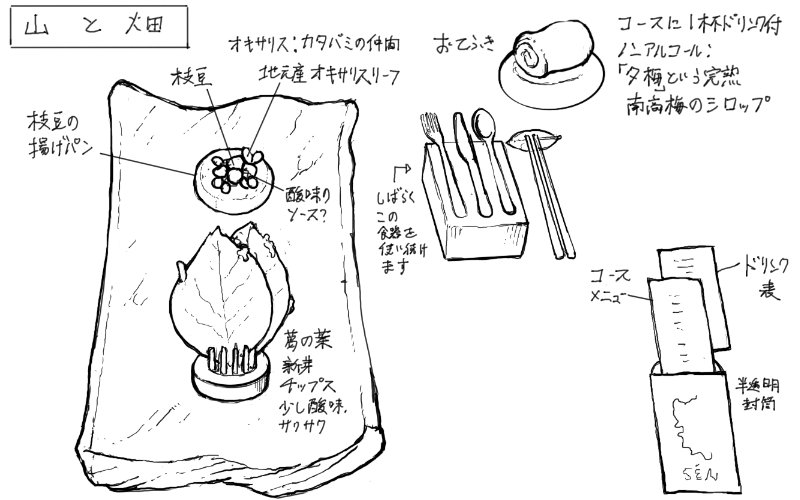 山と畑
オキサリス:カタバミの仲間
地元産オキサリスリーフ
枝豆
枝豆の
揚げパン
酸味の
ソース?
葛の葉
新丼
チップス
少し酸味.
サクサク
おてふき
コースに1杯ドリンク付
ノンアルコール:
「夕梅」という完熟
南高梅のシロップ
しばらく
この
食器を
使い続け
ます
コース
メニュー
ドリンク
表
半透明
封筒
SEN